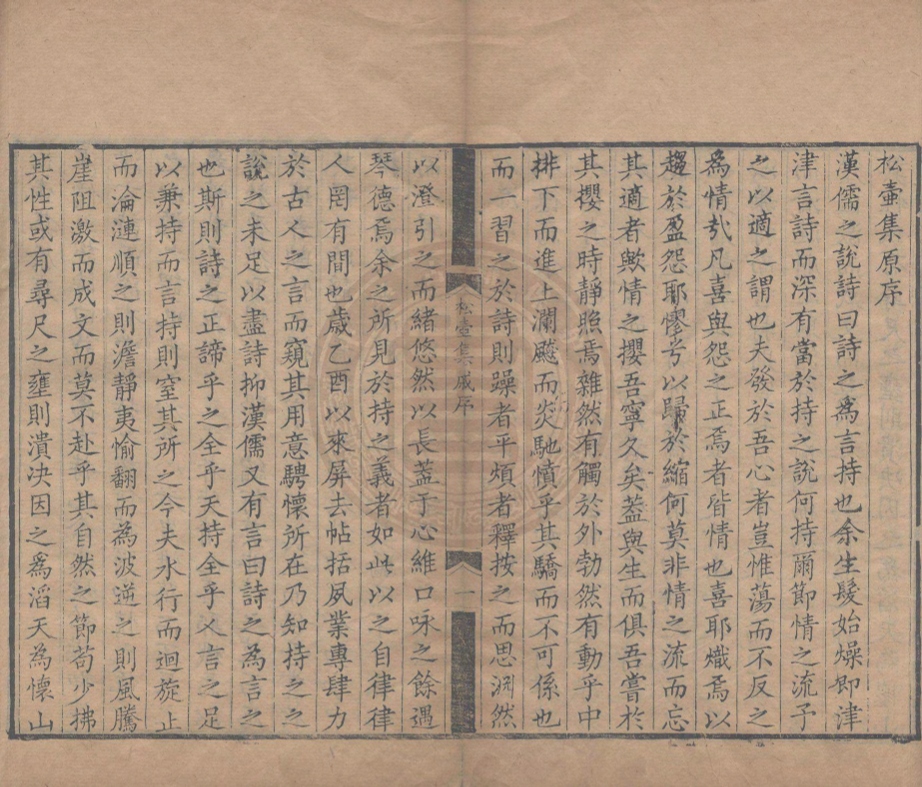 松壷集原序
漢儒之說詩曰詩之爲言持也余生髮始燥即津
津言詩而深有當於持之說何持爾節情之流予
之以適之謂也夫發於吾心者豈惟蕩而不反之
爲情㢤凡喜與怨之正焉者皆情也喜耶熾焉以
趨於盈怨耶慘兮以歸於縮何莫非情之流而忘
其適者歟情之攖吾寧久矣葢與生而俱吾嘗於
其攖之時靜照焉雜然有觸於外勃然有動乎中
排下而進上瀾飈而炎馳憤乎其驕而不可係也
而一習之於詩則躁者平煩者釋按之而思淵然
松壷集原序
一
以澄引之而緒悠然以長葢于心維口咏之餘遇
琴德焉余之所見於持之義者如此以之自律律
人罔有間也歲乙酉以來屏去帖括夙業專肆力
於古人之言而窺其用意騁懷所在乃知持之之
說之未足以盡詩抑漢儒又有言曰詩之為言之
也斯則詩之正諦乎之全乎天持全乎人言之足
以兼持而言持則窒其所之今夫水行而迴旋止
而淪漣順之則澹靜夷愉翻而為波逆之則風騰
崖阻激而成文而莫不赴乎其自然之節苟少拂
其性或有尋尺之壅則潰决因之爲滔天為懷山